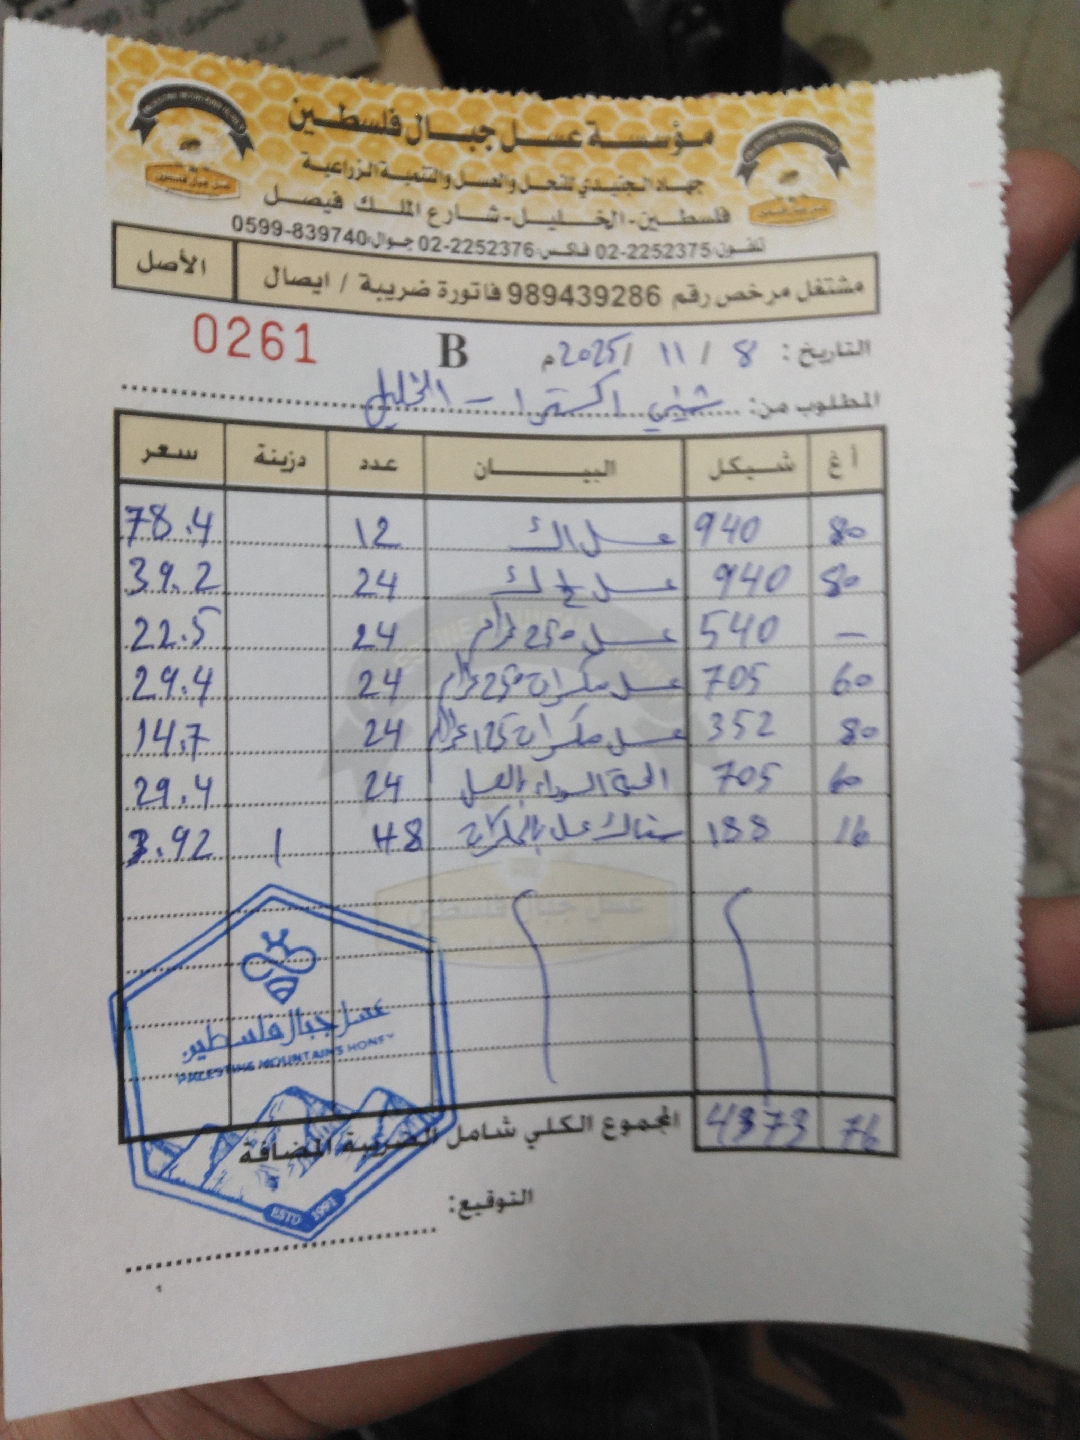 مؤسسة عسل جبال فلسطين
جهاد الجنيدي للنحل والعسل والتنمية الزراعية
فلسطين-الخليل-شارع الملك فيصل
تلفون:02-2252375 فاكس:02-2252376 جوال:0599-839740
مشتغل مرخص رقم 989439286 فاتورة ضريبة / ايصال الأصل
التاريخ: 8 / 11 / 2025م B 0261
المطلوب من: شيني اكسترا - الخليل
أ غ شيكل البيـــان عدد دزينة سعر
80 940 عسل 1 ك 12 78.4
80 940 عسل ½ ك 24 39.2
— 540 عسل 250 غرام 24 22.5
60 705 عسل مكسرات 250 غرام 24 29.4
80 352 عسل مكسرات 125 غرام 24 14.7
60 705 الحبة السوداء بالعسل 24 29.4
16 188 سناك عسل بالمكسرات 48 1 3.92
عسل جبال فلسطين
PALESTINE MOUNTAINS HONEY
ESTD 1991
المجموع الكلي شامل الضريبة المضافة 4373 76
التوقيع: